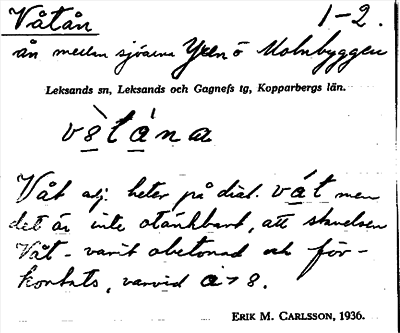 Våtån 1-2.
ån mellan sjöarna Yxen o Molnbyggen
Leksands sn, Leksands och Gagnefs tg, Kopparbergs län.
v8̀tána
Våt adj. heter på dial. vát men
det är inte otänkbart, att stavelsen
Våt- varit obetonad och för-
kortats, varvid a > 8.
ERIK M. CARLSSON, 1936.